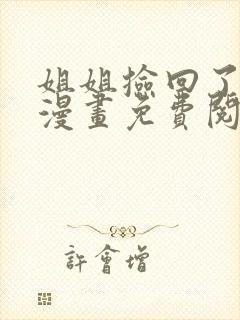 姐姐撿回了
漫畫免費閱
許會增